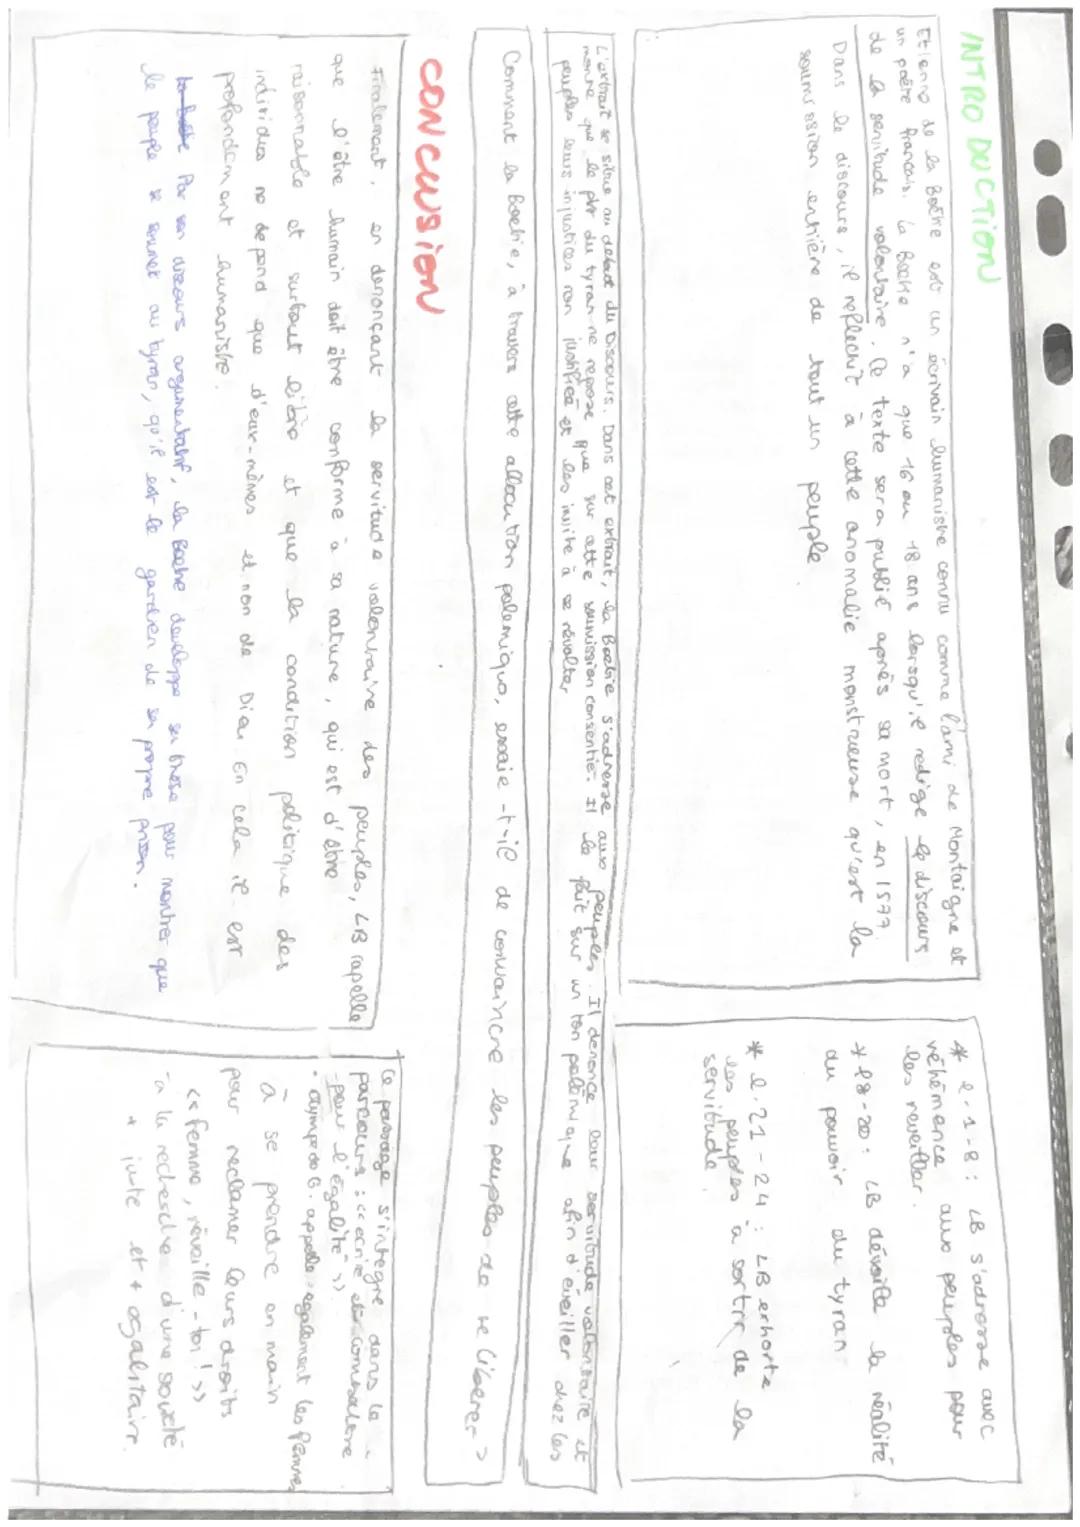 INTRODUCTION
Etienne de la Boétie est un écrivain humaniste connu comme l'ami de Montaigne et
un poète français. La Boétie n'a que 16 ou 18 ans lorsqu'il redige le discours
de la servitude volontaire. Ce texte sera publié après sa mort, en 1577.
Dans le discours, il reflechit à cette anomalie monstrueuse qu'est la
soumission entière de tout un peuple.
* l.1-8 : LB s'adresse avec
véhémence aux peuples pour
les reveiller.
* l8-20 : LB dévoile la réalité
du pouvoir du tyran
* l.21-24 : LB exhorte
les peuples à sortir de la
servitude.
L'extrait se situe au debut du Discours. Dans cet extrait, la Boétie s'adresse aux peuples. Il denonce leur servitude volontaire et
montre que le pvr du tyran ne repose que sur cette soumission consentie. Il le fait sur un ton polémique afin d'éveiller chez les
peuples leurs injustices non justifiée et les invite à se révolter
Comment la Boétie, à travers cette allocution polemique, essaie-t-il de convaincre les peuples de se liberer ?
CONCLUSION
Finalement, en denonçant la servitude volontaire des peuples, LB rapelle
que l'être humain doit être conforme à sa nature, qui est d'être
raisonnable et surtout libre et que la condition politique des
individus ne depend que d'eux-mêmes et non de Dieu. En cela il est
profondement humaniste.
Par son discours argumentatif, la Boetie developpe sa these pour montrer que
le peuple se soumet au tyran, qu'il est le gardien de sa propre prison.
Ce passage s'intègre dans le
parcours : << ecrire et combattre
pour l'égalité >>
• Olympe de G. appelle egalement les femmes
à se prendre en main
pour reclamer leurs droits
<< femme, réveille-toi ! >>
à la recherche d'une société
+ juste et + egalitaire.